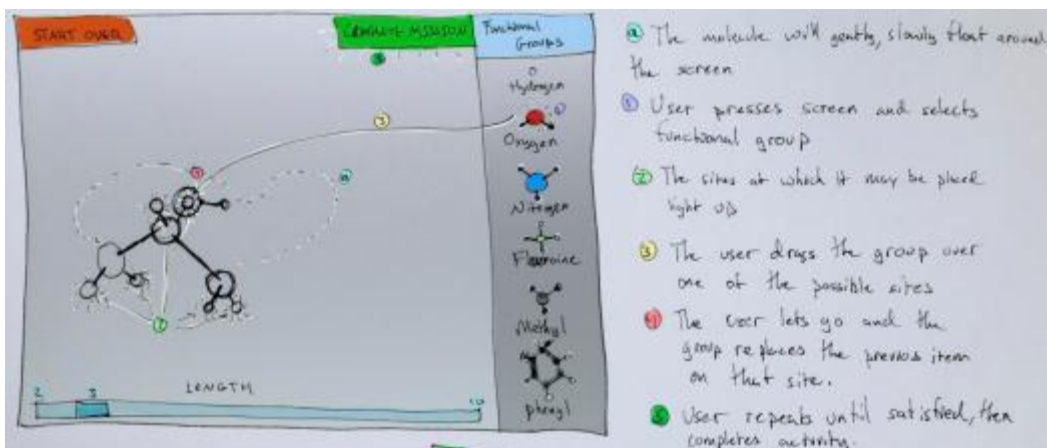 START OVER
COMPLETE MISSION
Functional
Groups
Hydrogen
Oxygen
Nitrogen
Flourine
Methyl
phenyl
2
3
LENGTH
10
a The molecule will gently, slowly float around
the screen
1 User presses screen and selects
functional group
2 The sites at which it may be placed
light up
3 The user drags the group over
one of the possible sites
4 The user lets go and the
group replaces the previous item
on that site.
5 User repeats until satisfied, then
completes activity.